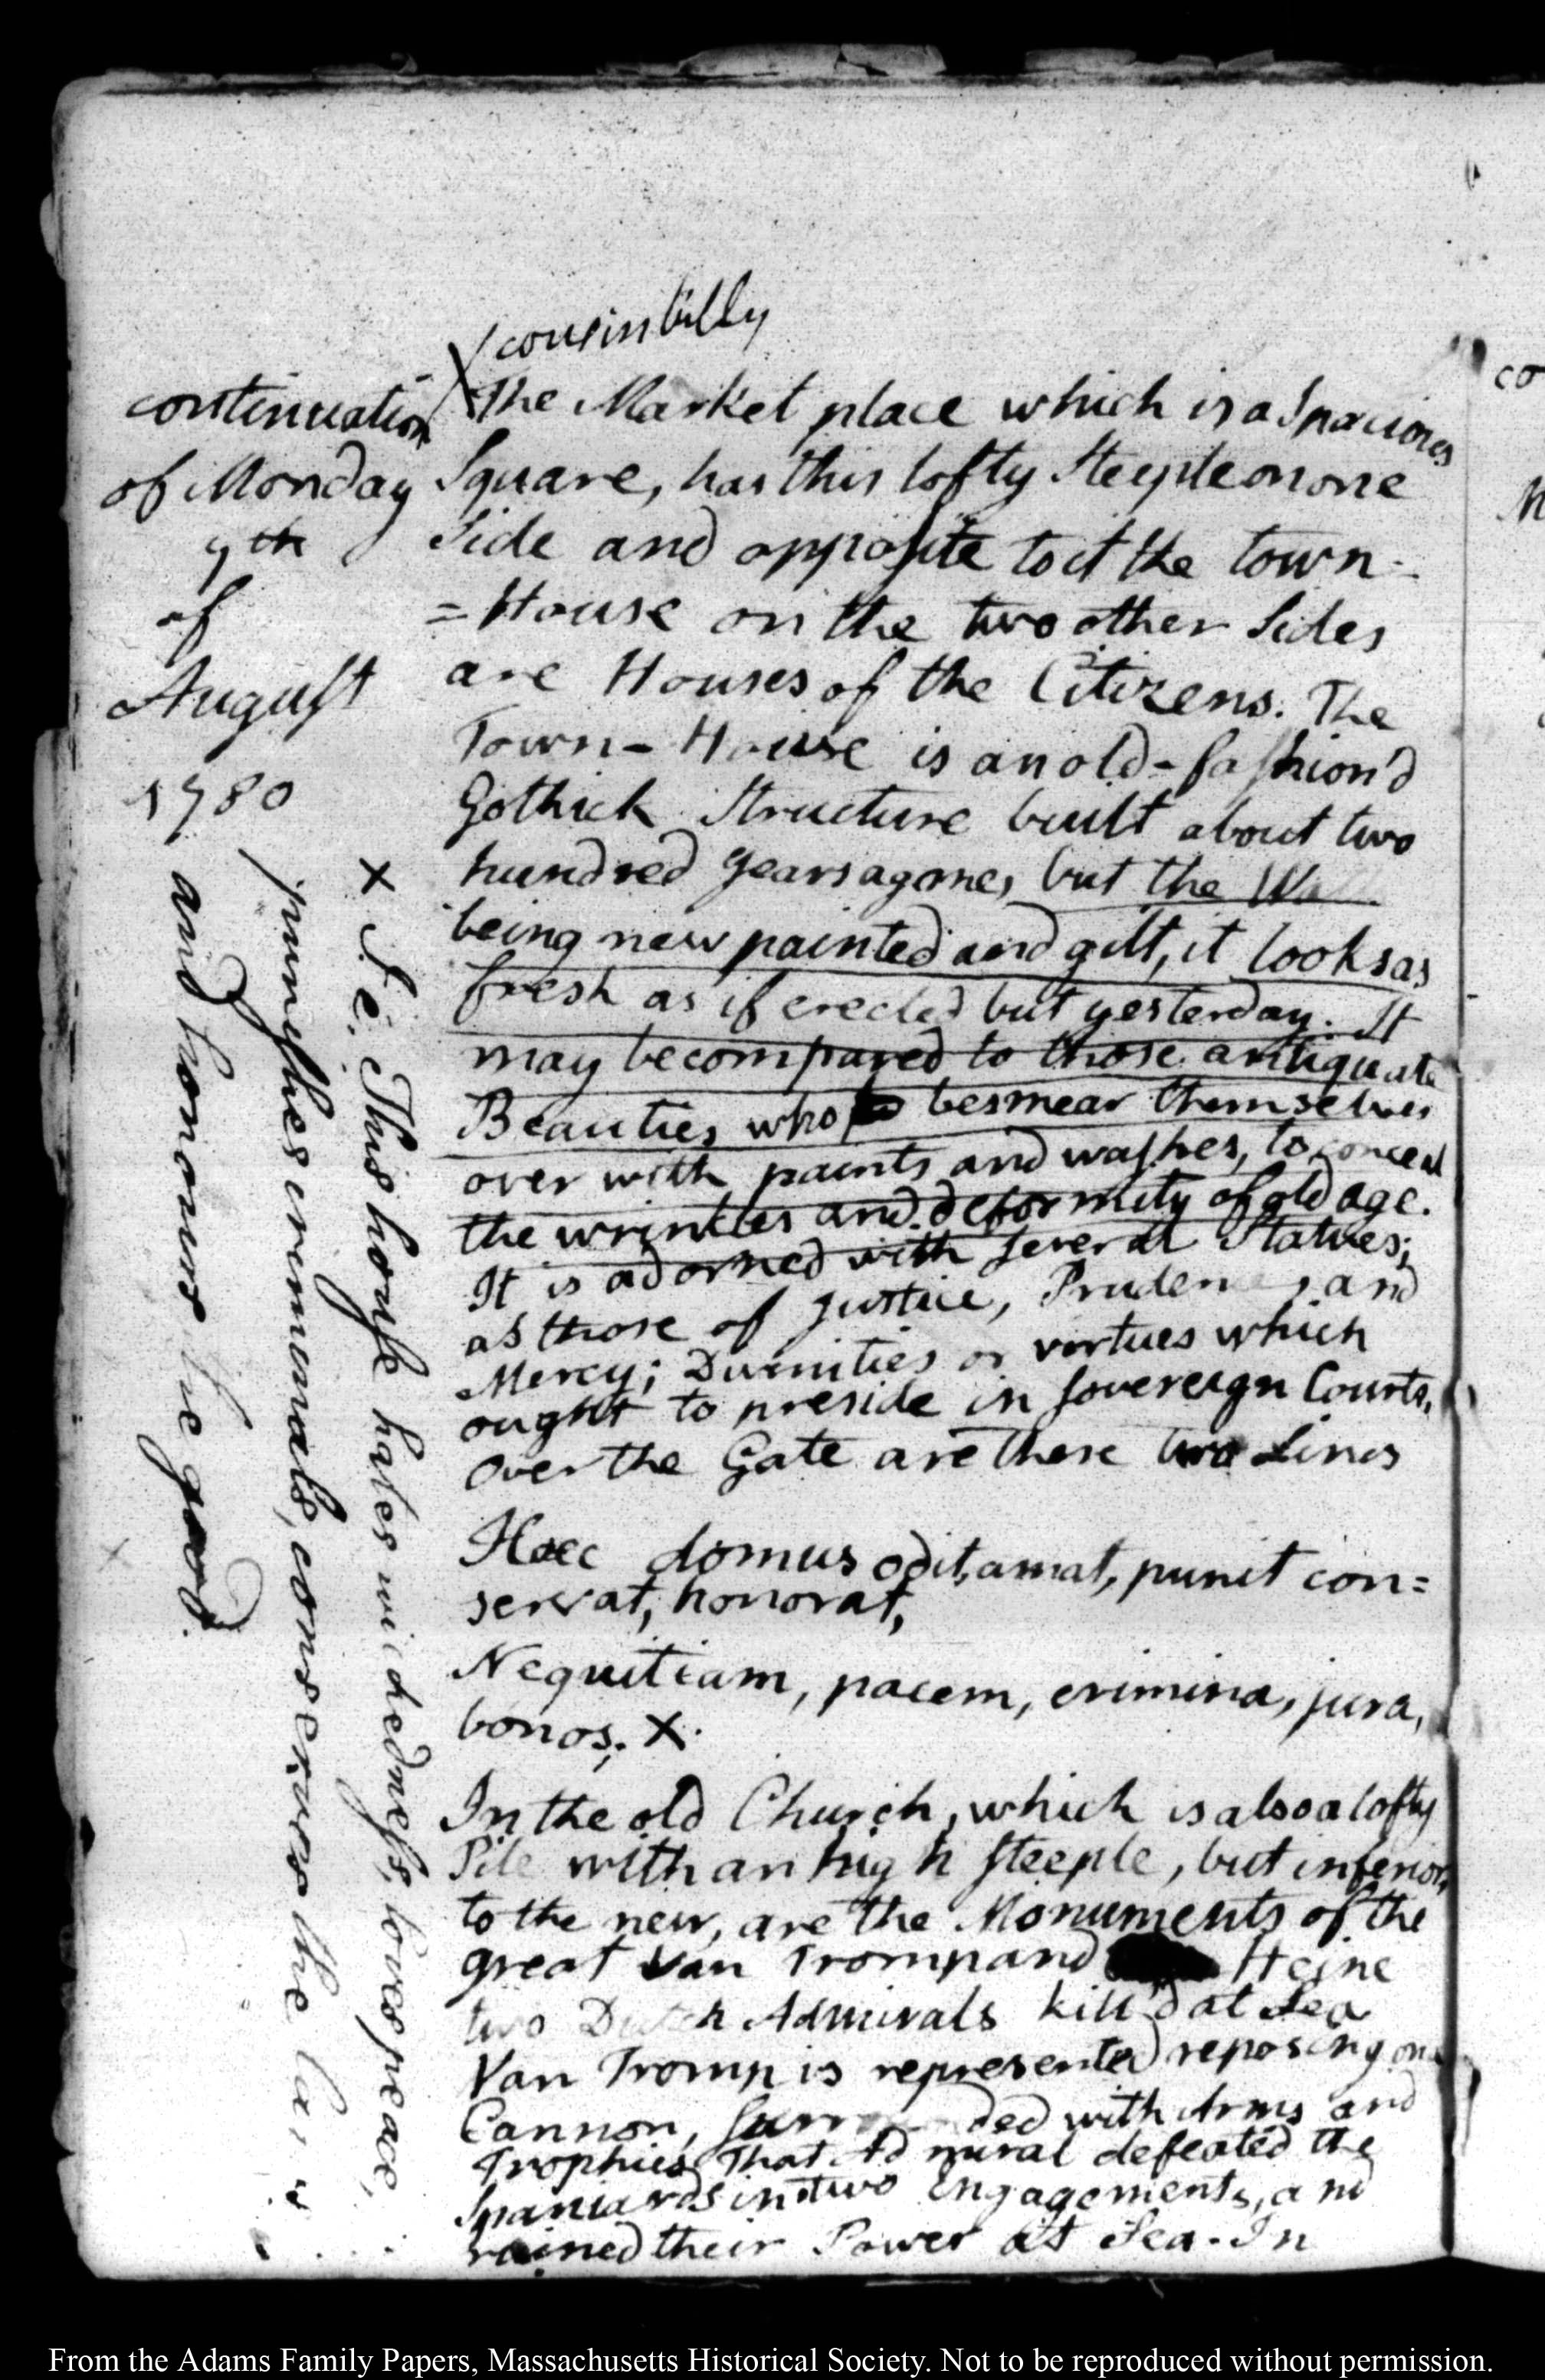 cousin billy
continuation
of Monday
7th
of
August
1780
The Market place which is a Spacious
Square, has this lofty Steeple on one
Side and opposite to it the town-
=House on the two other Sides
are Houses of the Citizens. The
Town-House is an old-fashion'd
Gothick Structure built about two
hundred years agone, but the
being new painted and gilt, it looks as
fresh as if erected but yesterday. It
may be compared to those antiquate
Beauties who besmear themselves
over with paints and washes, to conceal
the wrinkles and deformity of old age.
It is adorned with several Statues;
as those of Justice, Prudence, and
Mercy; Divinities or virtues which
ought to preside in sovereign Courts,
over the Gate are these two Lines
Haec domus odit, amat, punit con=
servat, honorat,
Nequitiam, pacem, crimina, jura,
bonos. X.
In the old Church, which is also a lofty
Pile with an high steeple, but inferior,
to the new, are the Monuments of the
great Van Tromp and Heine
two Dutch Admirals kill'd at Sea
Van Tromp is represented reposing on
Cannon, surrounded with Arms and
Trophies That Admiral defeated the
Spaniards in two Engagements, and
ruined their Power at Sea. In
X I. e. This house hates wickedness, loves peace,
punishes criminals, conserves the laws
and honours the good.
From the Adams Family Papers, Massachusetts Historical Society. Not to be reproduced without permission.